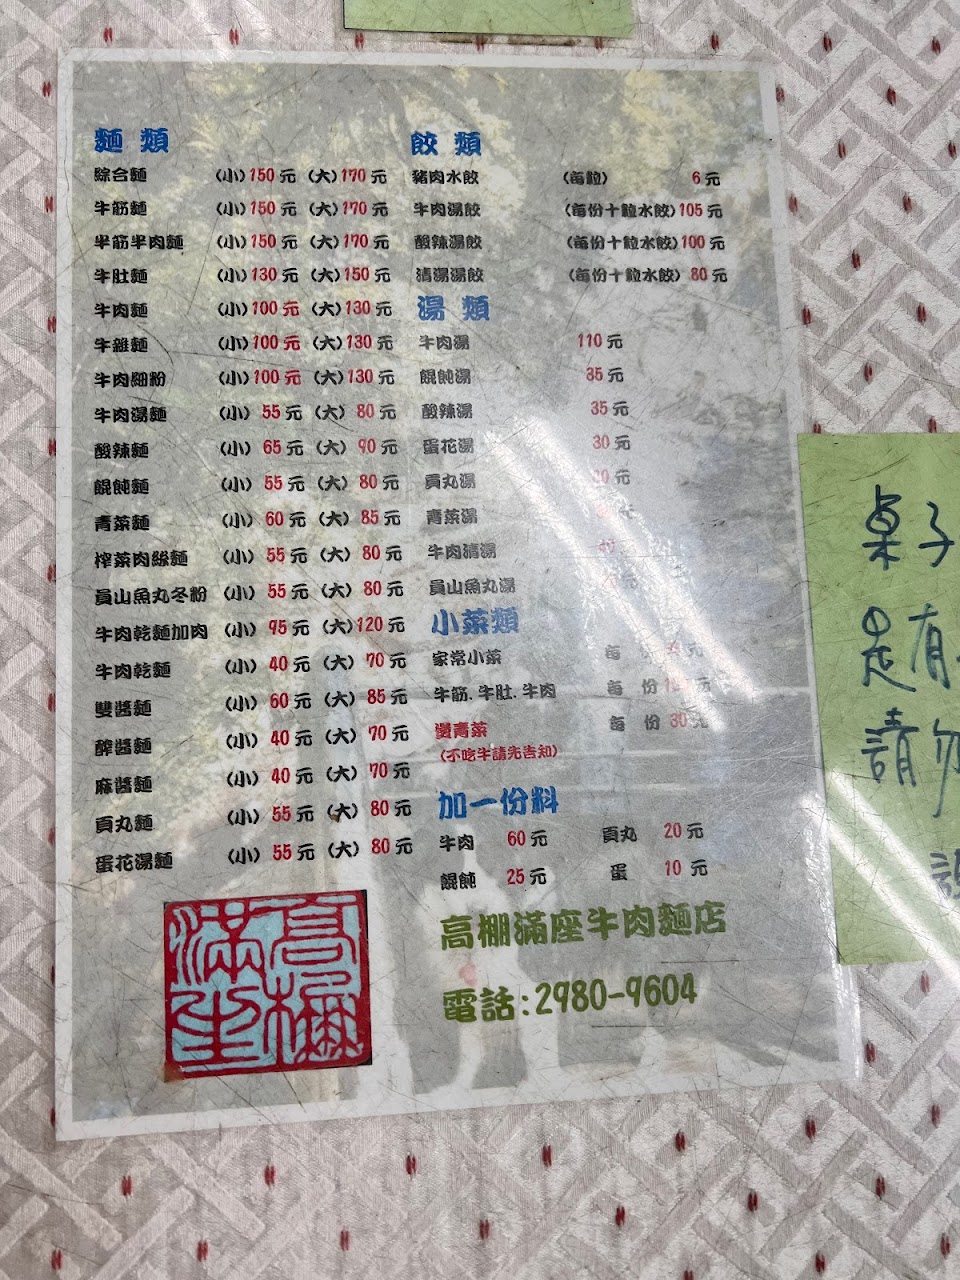 麵 類
綜合麵 (小)150元 (大)170元
牛筋麵 (小)150元 (大)170元
半筋半肉麵 (小)150元 (大)170元
牛肚麵 (小)130元 (大)150元
牛肉麵 (小)100元 (大)130元
牛雜麵 (小)100元 (大)130元
牛肉細粉 (小)100元 (大)130元
牛肉湯麵 (小) 55元 (大) 80元
酸辣麵 (小) 65元 (大) 90元
餛飩麵 (小) 55元 (大) 80元
青菜麵 (小) 60元 (大) 85元
榨菜肉絲麵 (小) 55元 (大) 80元
員山魚丸冬粉 (小) 55元 (大) 80元
牛肉乾麵加肉 (小) 95元 (大)120元
牛肉乾麵 (小) 40元 (大) 70元
雙醬麵 (小) 60元 (大) 85元
醡醬麵 (小) 40元 (大) 70元
麻醬麵 (小) 40元 (大) 70元
貢丸麵 (小) 55元 (大) 80元
蛋花湯麵 (小) 55元 (大) 80元
餃 類
豬肉水餃 (每粒) 6元
牛肉湯餃 (每份十粒水餃)105元
酸辣湯餃 (每份十粒水餃)100元
清湯湯餃 (每份十粒水餃) 80元
湯 類
牛肉湯 110元
餛飩湯 35元
酸辣湯 35元
蛋花湯 30元
貢丸湯 元
青菜湯
牛肉清湯
員山魚丸湯
小菜類
家常小菜 每
牛筋.牛肚.牛肉 每 份
燙青菜 每 份 30元
(不吃牛請先告知)
加一份料
牛肉 60元 貢丸 20元
餛飩 25元 蛋 10元
高棚滿座牛肉麵店
電話:2980-9604
高棚滿座
桌子
是有
請勿